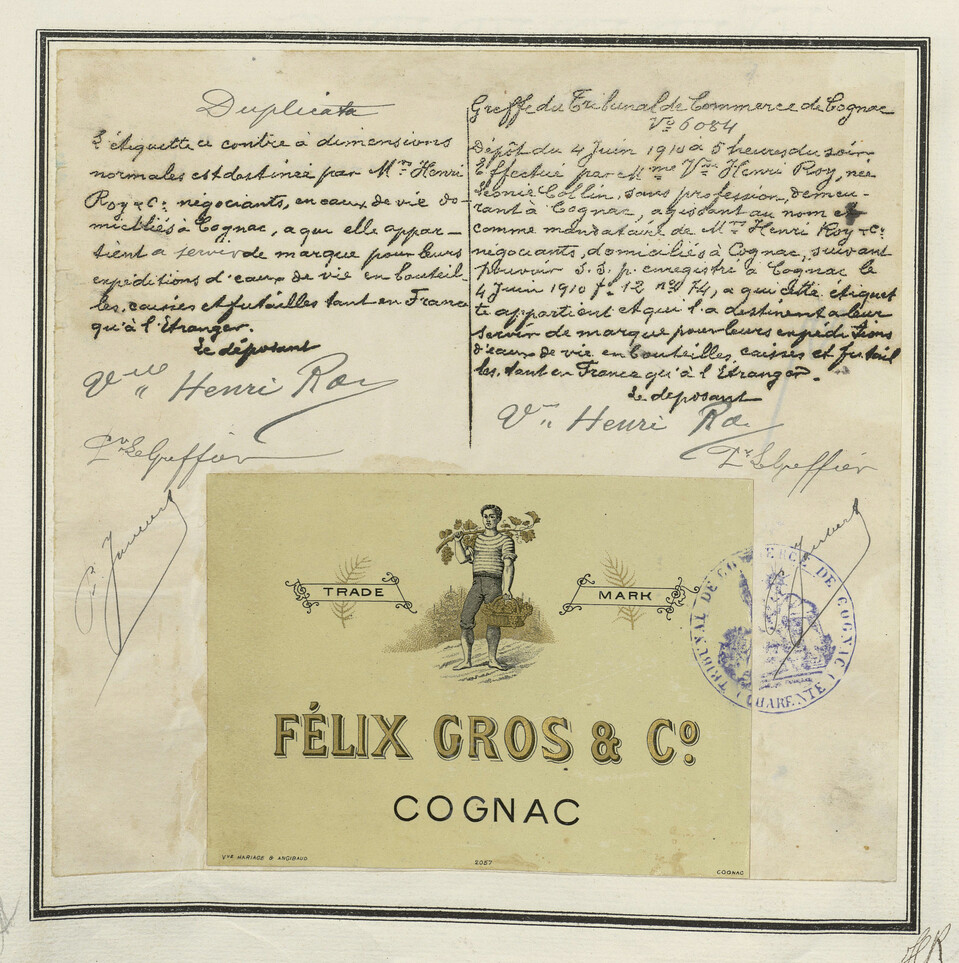 Duplicata
L'étiquette ci contre à dimensions
normales est destinée par Mme Vve Henri
Roy & Co négociants, en eaux de vie do-
miciliés à Cognac, a qui elle appar-
tient a servir de marque pour leurs
expéditions d'eaux de vie en bouteil-
les, caisses et futailles tant en France
qu'à l'Etranger.
Le déposant
Vve Henri Roy
Le Greffier
Greffe du Tribunal de Commerce de Cognac
No 6084
Dépôt du 4 Juin 1910 à 5 heures du soir
Effectué par Mme Vve Henri Roy, née
Léonie Collin, sans profession, demeu-
rant à Cognac, agissant au nom et
comme mandataire de Mrs Henri Roy & Co
négociants, domiciliés à Cognac, suivant
pouvoir S.S.p. enregistré à Cognac le
4 Juin 1910 fo 12 no 74, a qui cette étiquet
te appartient et qui l'a destinent a leur
servir de marque pour leurs expéditions
d'eaux de vie en bouteilles, caisses et futail
les, tant en France qu'à l'Étranger.
Le déposant
Vve Henri Roy
Le Greffier
TRADE MARK
FÉLIX GROS & Co
COGNAC
VVE MARIAGE & ANGIBAUD
2057
COGNAC
TRIBUNAL DE COMMERCE DE COGNAC
(CHARENTE)
HR